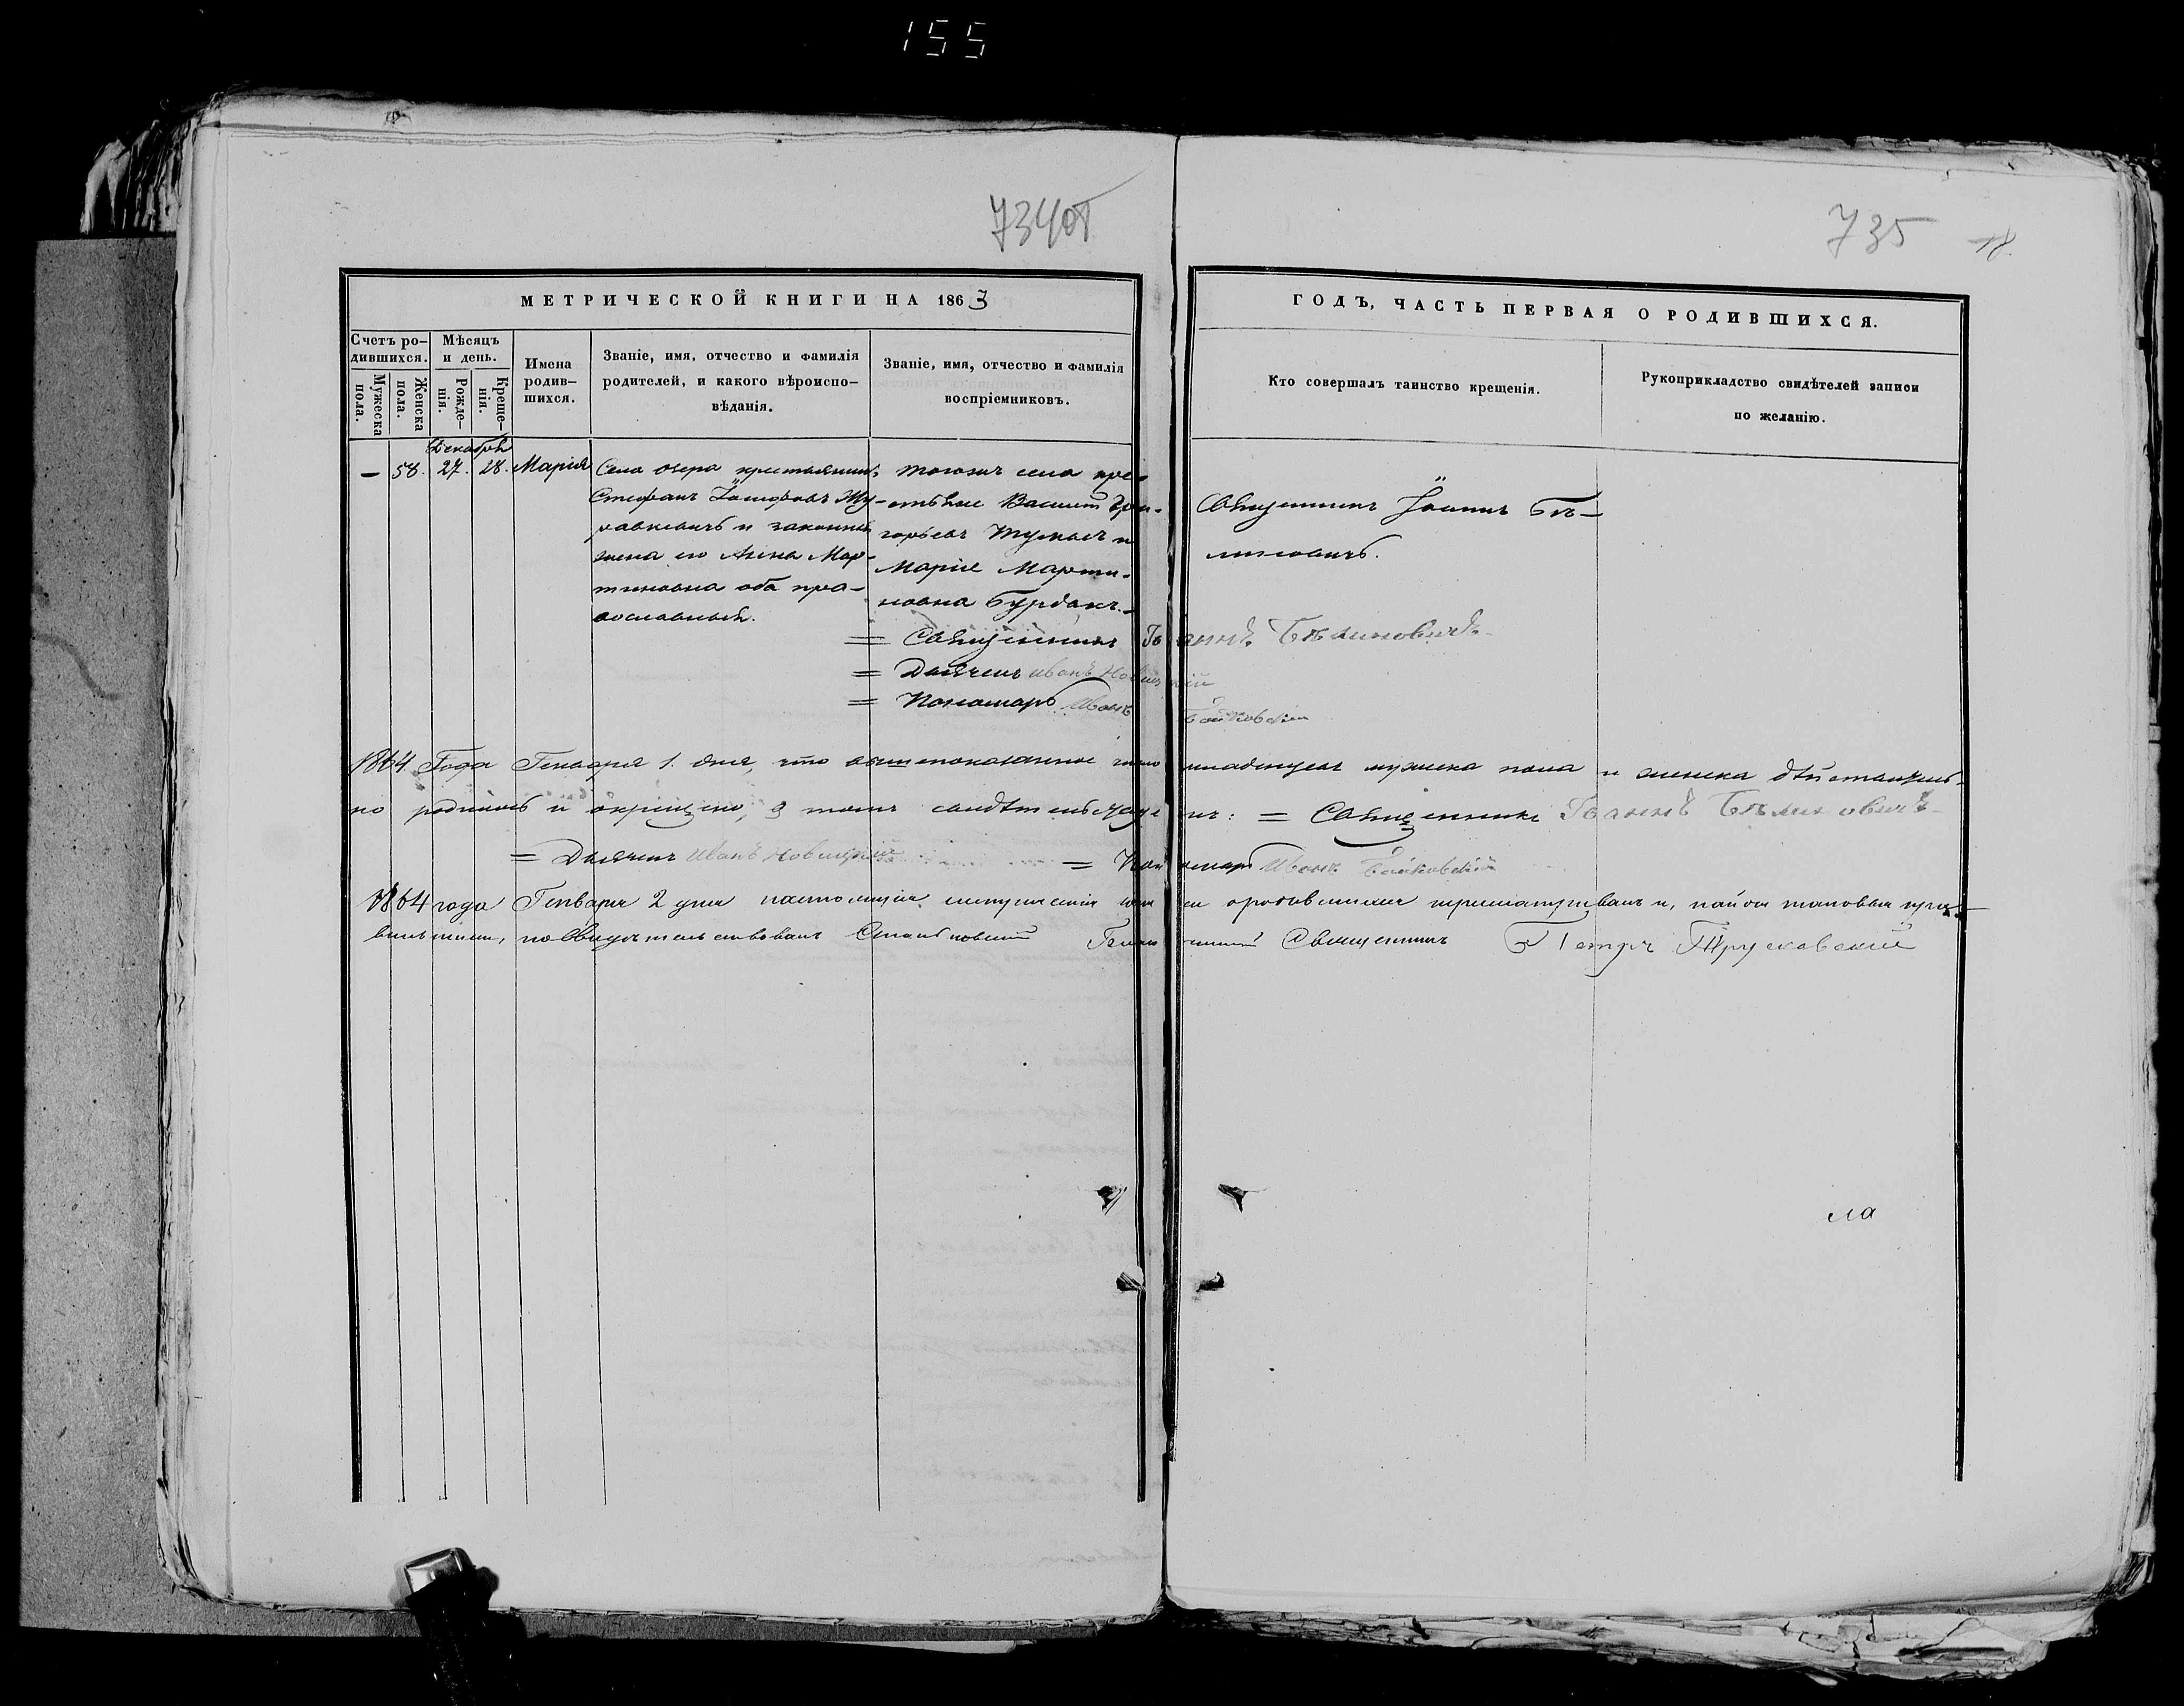 155
734об
735 18.
МЕТРИЧЕСКОЙ КНИГИ НА 1863
ГОДЪ, ЧАСТЬ ПЕРВАЯ О РОДИВШИХСЯ.
Счетъ ро-
дившихся.
Мужеска
пола.
Женска
пола.
Мѣсяцъ
и день.
Рожде-
нія.
Креще-
нія.
Имена
родив-
шихся.
Званіе, имя, отчество и фамилія
родителей, и какого вѣроиспо-
вѣданія.
Званіе, имя, отчество и фамилія
воспріемниковъ.
Кто совершалъ таинство крещенія.
Рукоприкладство свидѣтелей записи
по желанію.
Декабрь
— 58. 27. 28. Марія
Села озера крестьянинъ
Стефанъ Іосифовъ Жу-
равкевичъ и законная
жена его Анна Мар-
тиновна оба пра-
вославные.
тогожъ села кре-
стьяне Василій Гри-
горьевъ Тумасъ и
Марія Марти-
новна Бурдакъ.
Священникъ Іоаннъ Бѣ-
линовичъ.
= Священникъ Іоаннъ Бѣлиновичъ
= Дьячекъ Иванъ Новицкій
= Пономарь Иванъ Байковскій
1864 Года Генваря 1. дня, что вышепоказанное число младенцевъ мужеска пола и женска дѣйствитель-
но родилось и окрещено, въ томъ свидѣтельствуемъ: = Священникъ Іоаннъ Бѣлиновичъ
= Дьячекъ Иванъ Новицкій = Пономарь Иванъ Байковскій
1864 года Генваря 2 дня настоящія метрическія о родившихся пересматривалъ и, найдя таковыя пра-
вильными, по свидѣтельствовалъ Священникъ Петръ Трусковскій
ла